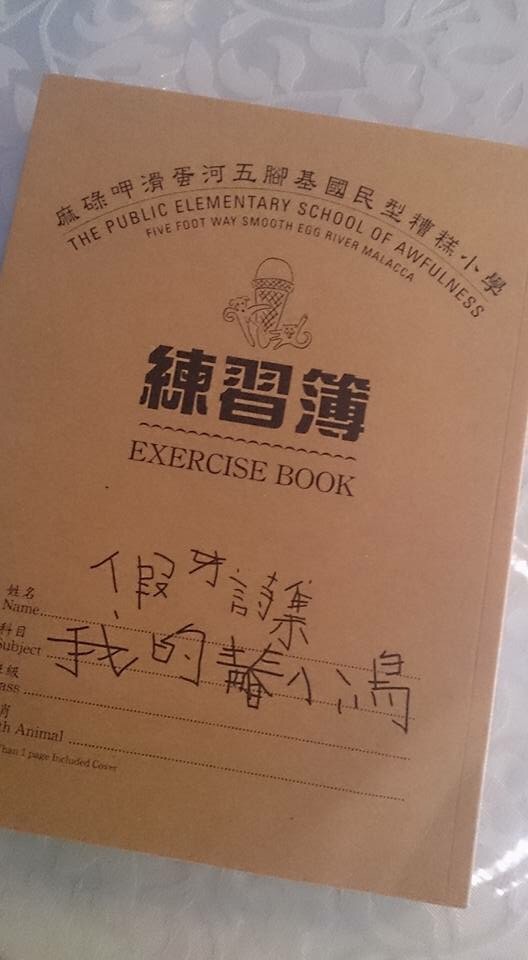 麻碌呷滑蛋河五腳基國民型糟糕小學
THE PUBLIC ELEMENTARY SCHOOL OF AWFULNESS
FIVE FOOT WAY SMOOTH EGG RIVER MALACCA
練習簿
EXERCISE BOOK
假牙詩集
我的青春小鳥
姓名
Name
科目
Subject
級
ass
肖
th Animal
han 1 page Included Cover